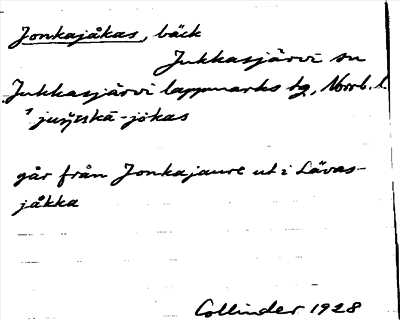 Jonkajåkas, bäck
Jukkasjärvi sn
Jukkasjärvi lappmarks tg, Norrb. l.
går från Jonkajaure ut i Lävas-
jåkka
Collinder 1928